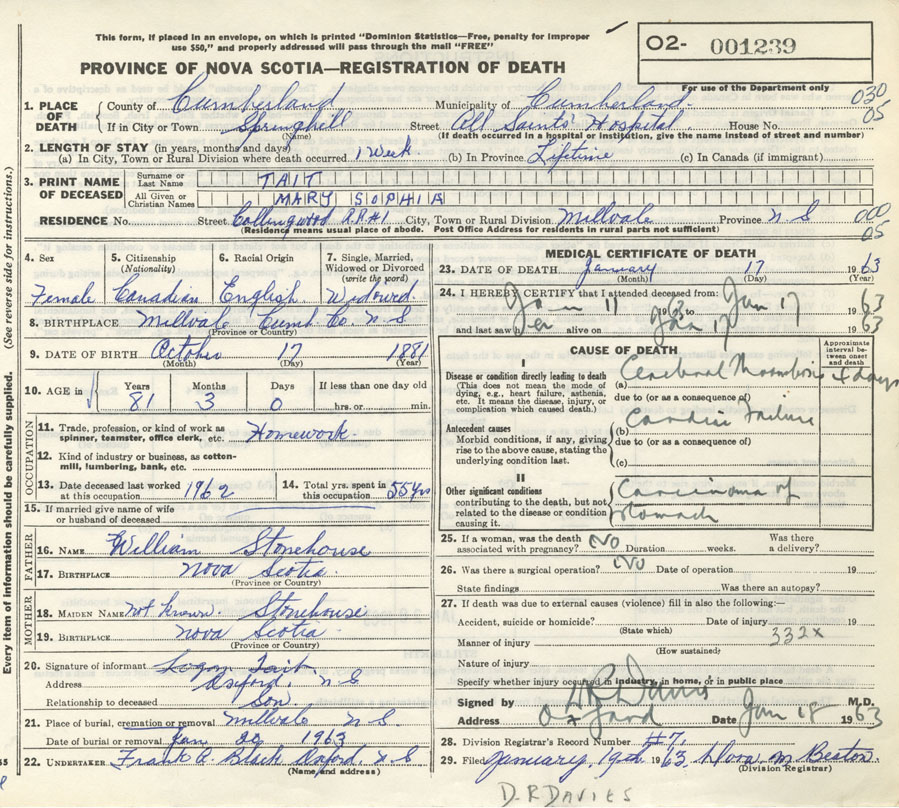 This form, if placed in an envelope, on which is printed "Dominion Statistics—Free, penalty for improper
use $50," and properly addressed will pass through the mail "FREE"
PROVINCE OF NOVA SCOTIA—REGISTRATION OF DEATH
O2- 001239
For use of the Department only
1. PLACE OF DEATH County of Cumberland Municipality of Cumberland 030
If in City or Town Springhill Street All Saints' Hospital House No. 05
(Name) (If death occurred in a hospital or institution, give the name instead of street and number)
2. LENGTH OF STAY (in years, months and days)
(a) In City, Town or Rural Division where death occurred 1 Week (b) In Province Lifetime (c) In Canada (if immigrant)
3. PRINT NAME OF DECEASED Surname or Last Name TAIT
All Given or Christian Names MARY SOPHIA
RESIDENCE No. Street Collingwood R.R.#1 City, Town or Rural Division Millvale Province N S 000
(Residence means usual place of abode. Post Office Address for residents in rural parts not sufficient) 05
4. Sex 5. Citizenship (Nationality) 6. Racial Origin 7. Single, Married, Widowed or Divorced (write the word)
Female Canadian English Widowed
8. BIRTHPLACE Millvale Cumb. Co. N S
(Province or Country)
9. DATE OF BIRTH October 17 1881
(Month) (Day) (Year)
10. AGE in Years Months Days If less than one day old
81 3 0 hrs. or min.
OCCUPATION
11. Trade, profession, or kind of work as spinner, teamster, office clerk, etc. Homework
12. Kind of industry or business, as cotton-mill, lumbering, bank, etc.
13. Date deceased last worked at this occupation 1962 14. Total yrs. spent in this occupation 55 yrs
15. If married give name of wife or husband of deceased
FATHER
16. NAME William Stonehouse
17. BIRTHPLACE Nova Scotia
(Province or Country)
MOTHER
18. MAIDEN NAME not known. Stonehouse
19. BIRTHPLACE Nova Scotia
(Province or Country)
20. Signature of informant Logan Tait
Address Oxford, N S
Relationship to deceased Son
21. Place of burial, cremation or removal Millvale N S.
Date of burial or removal Jan 20 1963
22. UNDERTAKER Frank A. Black Oxford. N S
(Name and address)
MEDICAL CERTIFICATE OF DEATH
23. DATE OF DEATH January 17 1963
(Month) (Day) (Year)
24. I HEREBY CERTIFY that I attended deceased from:
Jan 11 1963 to Jan 17 1963
and last saw her alive on Jan 17 1963
CAUSE OF DEATH
Approximate interval between onset and death
I
Disease or condition directly leading to death
(This does not mean the mode of dying, e.g., heart failure, asthenia, etc. It means the disease, injury, or complication which caused death.)
(a) Cerebral Thrombosis 7 days
due to (or as a consequence of)
Antecedent causes
Morbid conditions, if any, giving rise to the above cause, stating the underlying condition last.
(b) Cardiac Failure
due to (or as a consequence of)
(c)
II
Other significant conditions
contributing to the death, but not related to the disease or condition causing it.
Carcinoma of
Stomach
25. If a woman, was the death associated with pregnancy? No Duration weeks. Was there a delivery?
26. Was there a surgical operation? No Date of operation 19
State findings Was there an autopsy?
27. If death was due to external causes (violence) fill in also the following:—
Accident, suicide or homicide? Date of injury 19
(State which)
Manner of injury 332x
(How sustained)
Nature of injury
Specify whether injury occurred in industry, in home, or in public place
Signed by D R Davies M.D.
Address Oxford Date Jan 18 1963
28. Division Registrar's Record Number #7
29. Filed January 19th 1963 Dora M Beaton.
(Division Registrar)
D.R DAVIES
Every item of information should be carefully supplied. (See reverse side for instructions.)